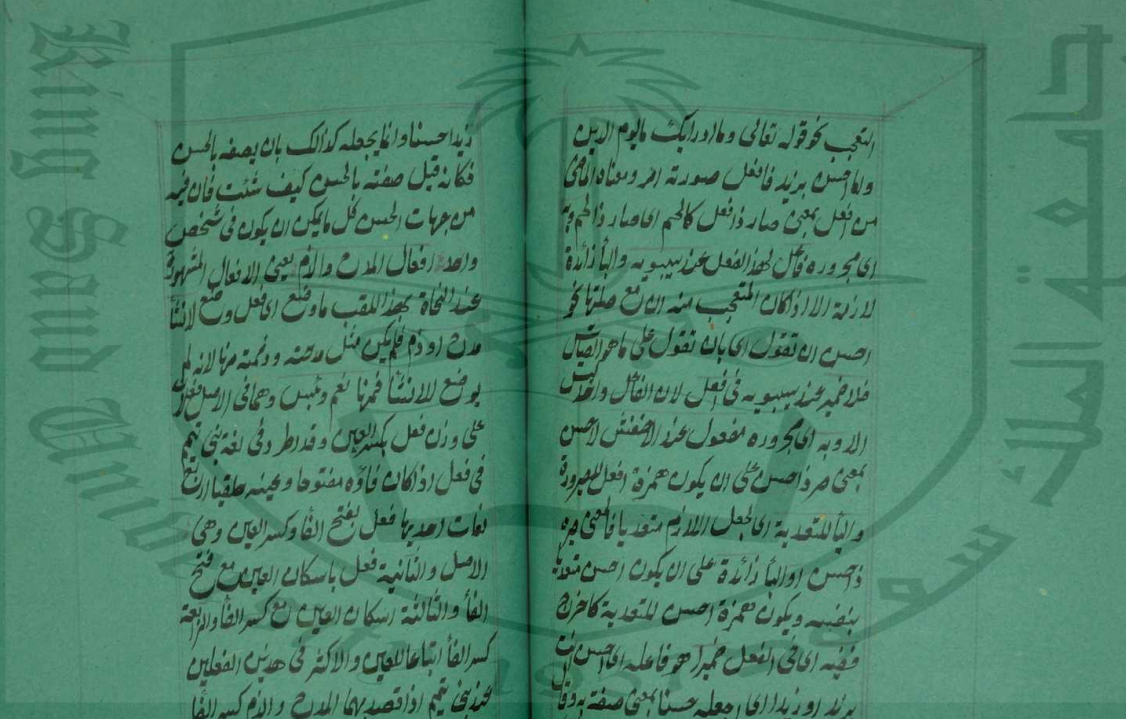 التعجب نحو قوله تعالى وما ادراك ما يوم الدين
واما احسن بزيد فافعل صورته امر ومعناه الماضي
من افعل بمعنى صار ذا فعل كالحم اى صار ذا لحم وبه
اى مجروره فاعل لهذا الفعل عند سيبويه والبا زائدة
لازمة الا اذا كان المتعجب منه ان مع صلتها نحو
احسن ان تقول اى بان تقول على ما هو القياس
فلا ضمير عند سيبويه فى افعل لان الفاعل واحد ليس
الا وبه اى مجروره مفعول عند الاخفش لاحسن
بمعنى صر ذا حسن على ان يكون همزة افعل للصيرورة
والبا للتعدية اى لجعل اللازم متعديا فالمعنى صيره
ذا حسن او البا زائدة على ان يكون احسن متعديا
بنفسه ويكون همزة احسن للتعدية كاخرج
ففيه اى فى الفعل ضمير هو فاعله اى احسن انت
بزيد او زيدا اى اجعله حسنا بمعنى صفه به وقال
زيدا حسنا وانما يجعله كذالك بان يصفه بالحسن
فكانه قيل صفته بالحسن كيف شئت فان فيه
من جهات الحسن كل ما يمكن ان يكون فى شخص
واحد افعال المدح والذم يعنى الافعال المشهورة
عند النحاة بهذا اللقب ما وضع اى فعل وضع لانشا
مدح او ذم فلم يكن مثل مدحته وذممته منها لانه لم
يوضع للانشا فمنها نعم وبئس وهما فى الاصل فعلان
على وزن فعل بكسر العين وقد اطرد فى لغة بنى تميم
فى فعل اذا كان فاؤه مفتوحا وعينه حلقيا اربع
لغات احديها فعل بفتح الفا وكسر العين وهى
الاصل والثانية فعل باسكان العين مع فتح
الفا والثالثة اسكان العين مع كسر الفا والرابعة
كسر الفا اتباعا للعين والاكثر فى هذين الفعلين
عند بنى تميم اذا قصد بهما المدح والذم كسر الفا
King Saud University
جامعة الملك سعود
1957